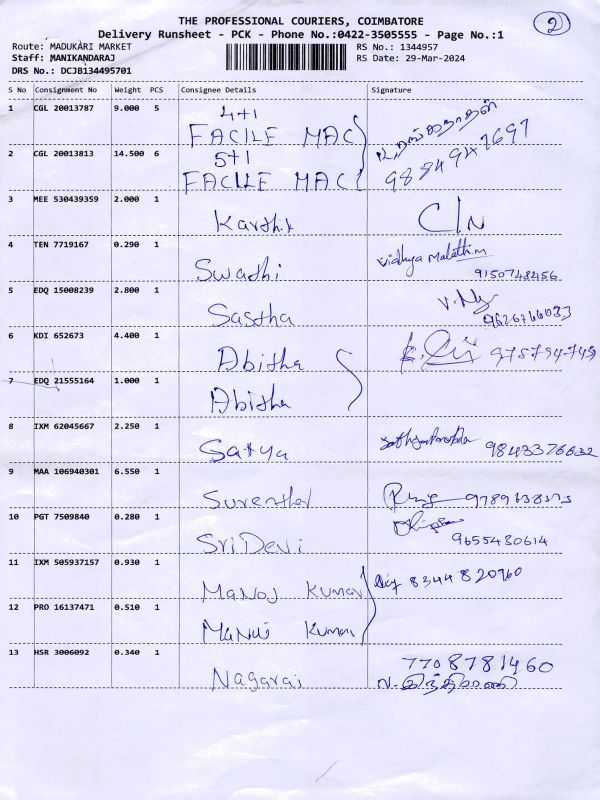 THE PROFESSIONAL COURIERS, COIMBATORE
2
Delivery Runsheet - PCK - Phone No.:0422-3505555 - Page No.:1
Route: MADUKARI MARKET
RS No.: 1344957
Staff: MANIKANDARAJ
RS Date: 29-Mar-2024
DRS No.: DCJB134495701
S No Consignment No Weight PCS Consignee Details Signature
1 CGL 20013787 9.000 5 4+1
FACILE MAC
2 CGL 20013813 14.500 6 5+1
FACILE MAC
3 MEE 530439359 2.000 1
Karthik
4 TEN 7719167 0.290 1 Vidhya Malathi
Swathi 9150748456
5 EDQ 15008239 2.800 1
Sastha
6 KDI 652673 4.400 1
Abitha
7 EDQ 21555164 1.000 1
Abitha
8 IXM 62045667 2.250 1
Satya 9843376632
9 MAA 106940301 6.550 1
10 PGT 7509840 0.280 1
SriDevi 9655430614
11 IXM 505937157 0.930 1 8344820960
Manoj Kumar
12 PRO 16137471 0.510 1
Manoj Kumar
13 HSR 3006092 0.340 1 7708781460
Nagaraj